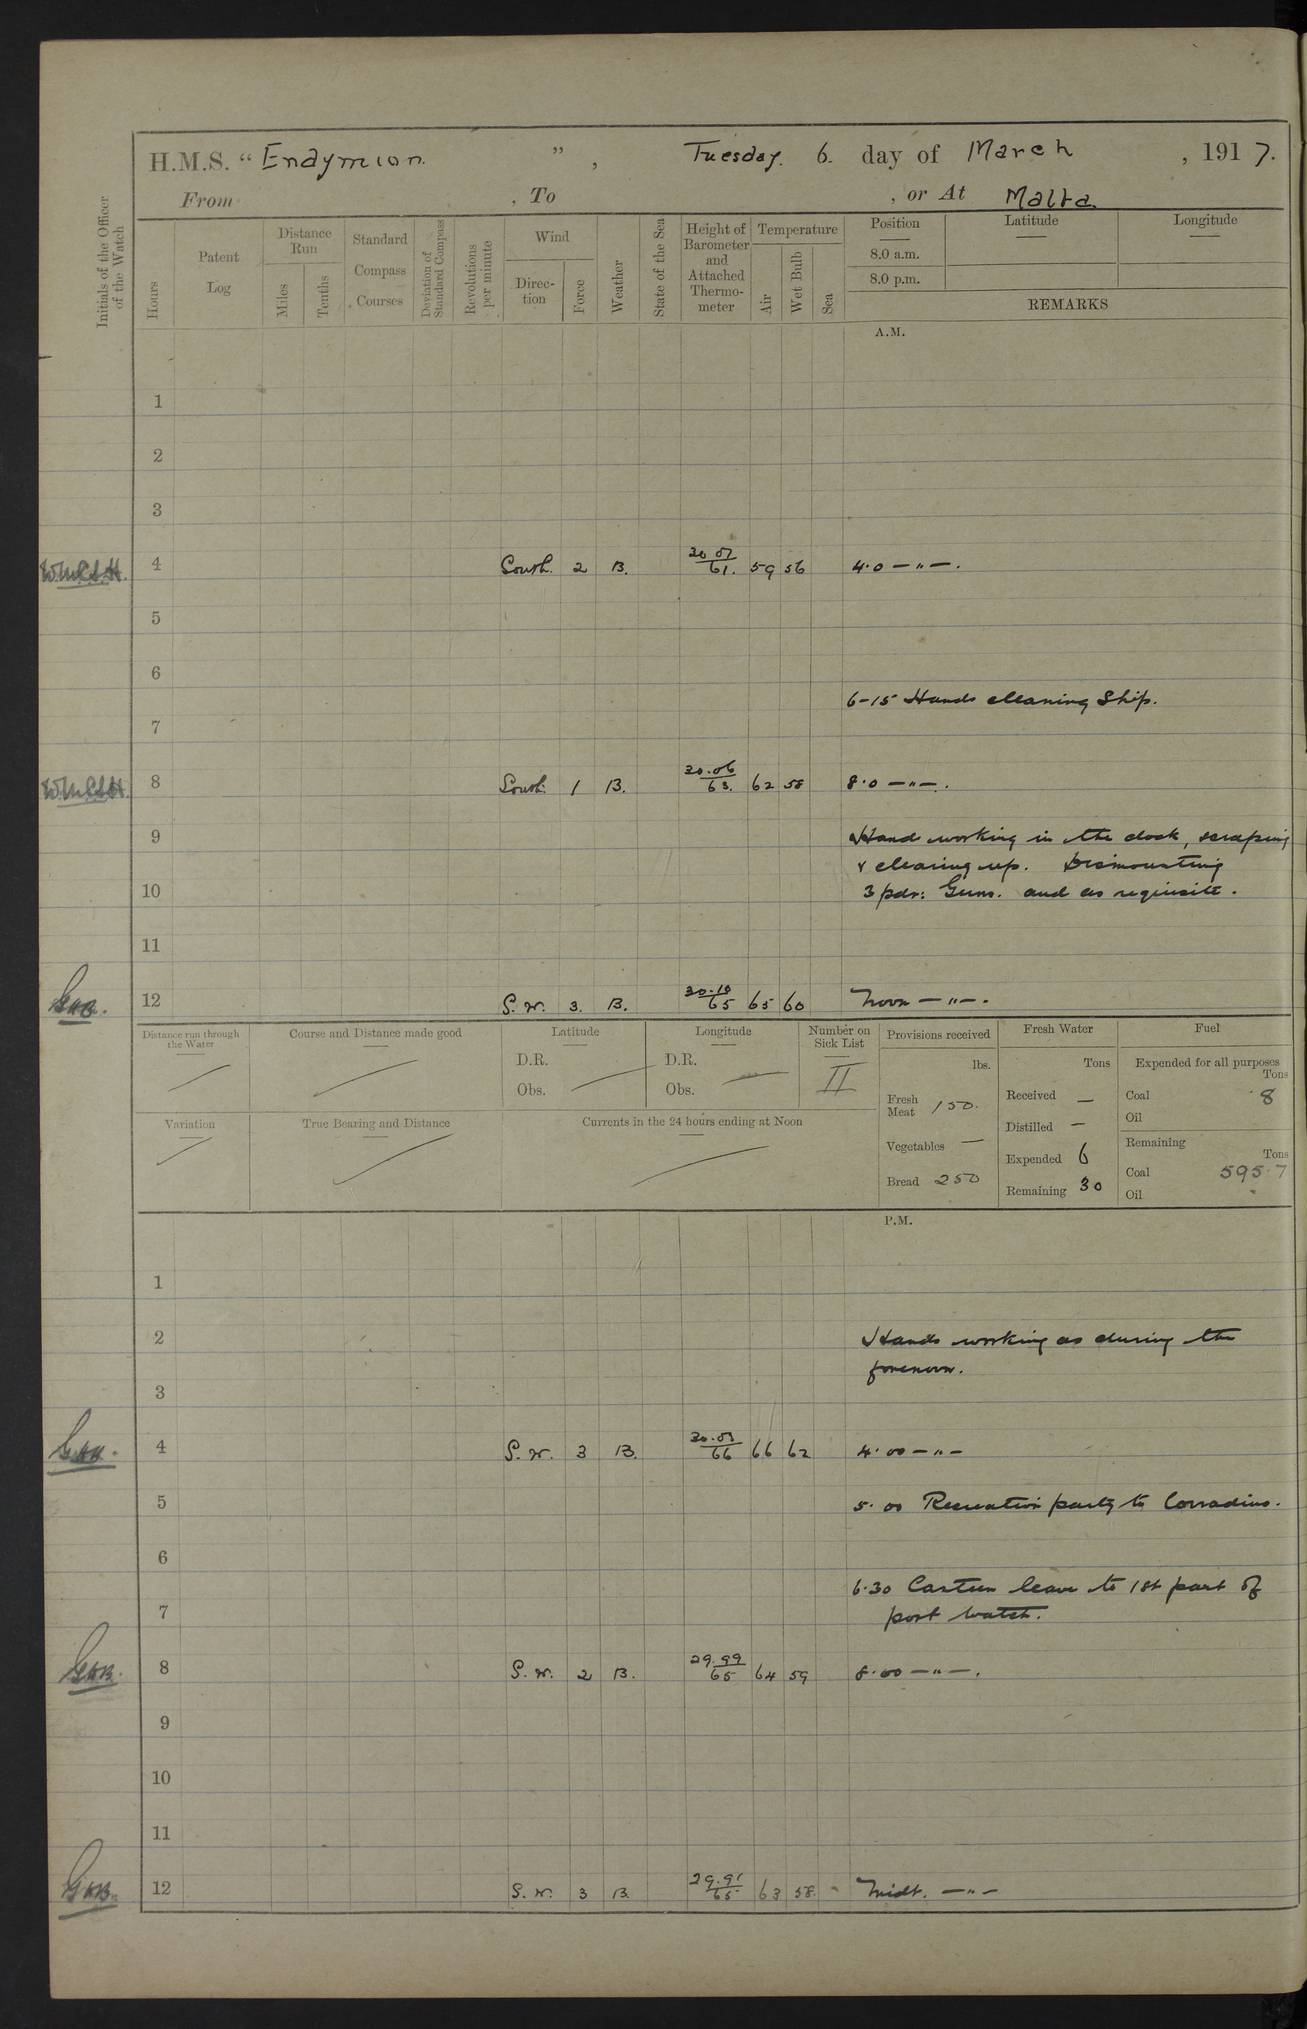 H.M.S. “ Endymion ” , Tuesday. 6. day of March , 1917.
From , To , or At Malta
Initials of the Officer of the Watch
Hours
Patent Log
Distance Run
Miles
Tenths
Standard Compass Courses
Deviation of Standard Compass
Revolutions per minute
Wind
Direction
Force
Weather
State of the Sea
Height of Barometer and Attached Thermometer
Temperature
Air
Wet Bulb
Sea
Position
8.0 a.m.
8.0 p.m.
Latitude
Longitude
REMARKS
A.M.
1
2
3
4 South. 2 B. 61. 59 56 4.0 — " — .
5
6
6-15 Hands cleaning Ship.
7
8 South. 1 B. 30.06 63. 62 58 8.0 — " — .
9 Hands working in the dock, scraping
& clearing up. Dismounting
10 3 pdr: Guns. and as requisite.
11
12 S.W. 3. B. 30.10 65 65 60 Noon — " — .
Distance run through the Water
Course and Distance made good
Latitude
D.R.
Obs.
Longitude
D.R.
Obs.
Number on Sick List
11
Provisions received
lbs.
Fresh Meat 150.
Vegetables —
Bread 250
Fresh Water
Tons
Received —
Distilled —
Expended 6
Remaining 30
Fuel
Expended for all purposes
Tons
Coal 8
Oil
Remaining
Tons
Coal 595.7
Oil
Variation
True Bearing and Distance
Currents in the 24 hours ending at Noon
P.M.
1
2 Hands working as during the
forenoon.
3
4 S.W. 3 B. 66 66 62 4.00 — " —
5 5.00 Recreation party to Corradino.
6
6.30 Canteen leave to 1st part of
7 port watch.
8 S.W. 2 B. 29.99 65 64 59 8.00 — " — .
9
10
11
12 S.W. 3 B. 29.91 65 63 58 Midt. — " —